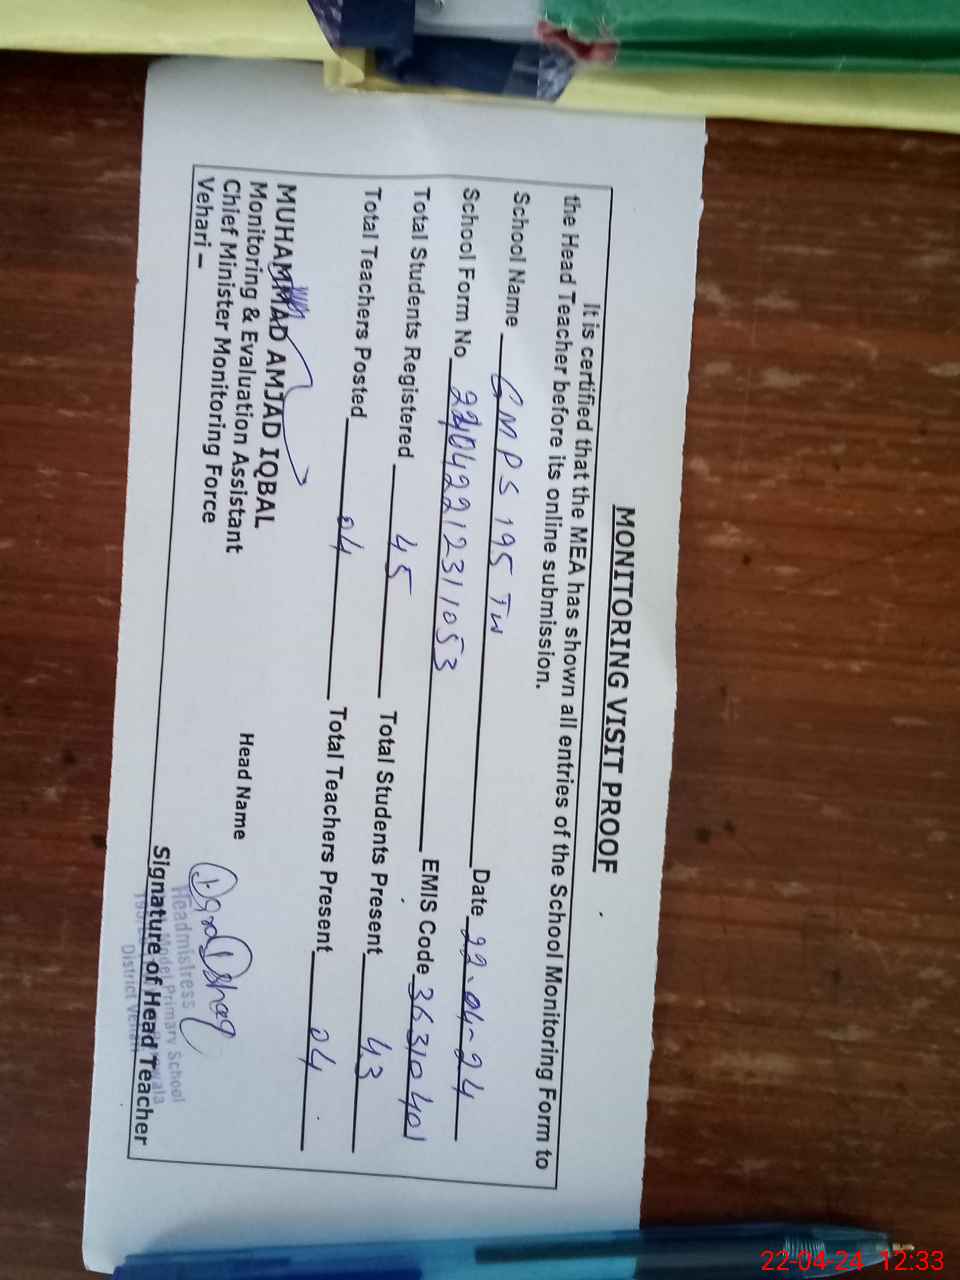 MONITORING VISIT PROOF
It is certified that the MEA has shown all entries of the School Monitoring Form to
the Head Teacher before its online submission.
School Name GMPS 195 TW Date 22.04-24
School Form No 22042212311053 EMIS Code 36310401
Total Students Registered 45 Total Students Present 43
Total Teachers Posted 04 Total Teachers Present 04
MUHAMMAD AMJAD IQBAL
Monitoring & Evaluation Assistant
Chief Minister Monitoring Force
Vehari –
Head Name
Headmistress
Model Primary School
District Vehari
Signature of Head Teacher
22-04-24 12:33